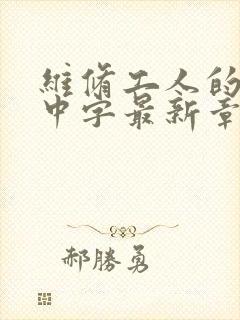 維脩工人的
中字最新章
郝勝勇